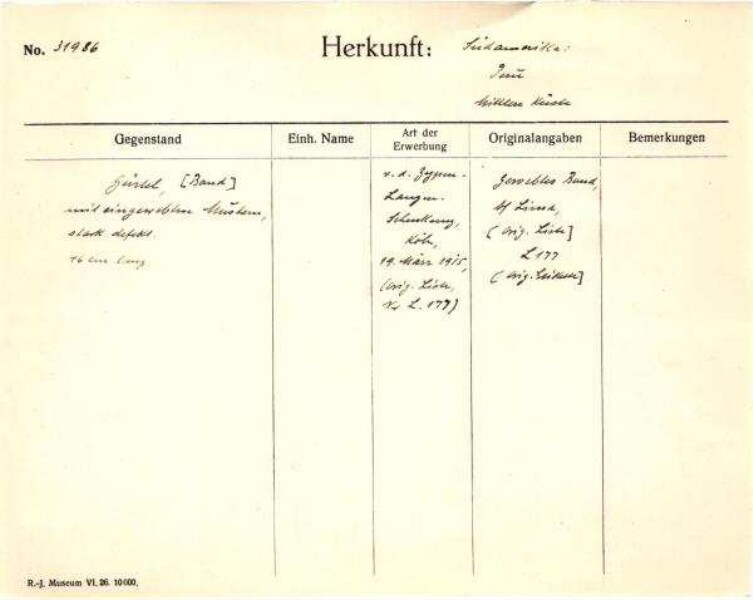 No. 31986
Herkunft: Südamerika:
Peru
Mittlere Küste
Gegenstand
Einh. Name
Art der Erwerbung
Originalangaben
Bemerkungen
Gürtel, [Band]
mit eingewebten Mustern,
stark defekt.
16 cm lang
v. d. Zypen-
Langen-
Schenkung,
Köln,
19. März 1915,
(Orig. Liste,
Nr L. 177)
Gewebtes Band,
bf Lima,
(Orig. Liste]
L 177
(Orig.
R.-J. Museum VI. 26. 10000.